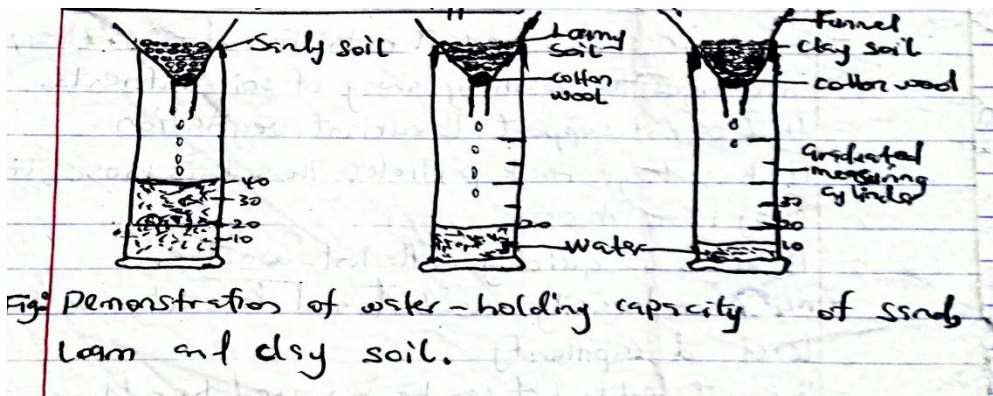 Sandy soil
40
30
20
10
Loamy
soil
cotton
wool
20
water
Funnel
clay soil
cotton wool
graduated
measuring
cylinder
30
20
10
Fig: Demonstration of water-holding capacity of sand,
Loam and clay soil.